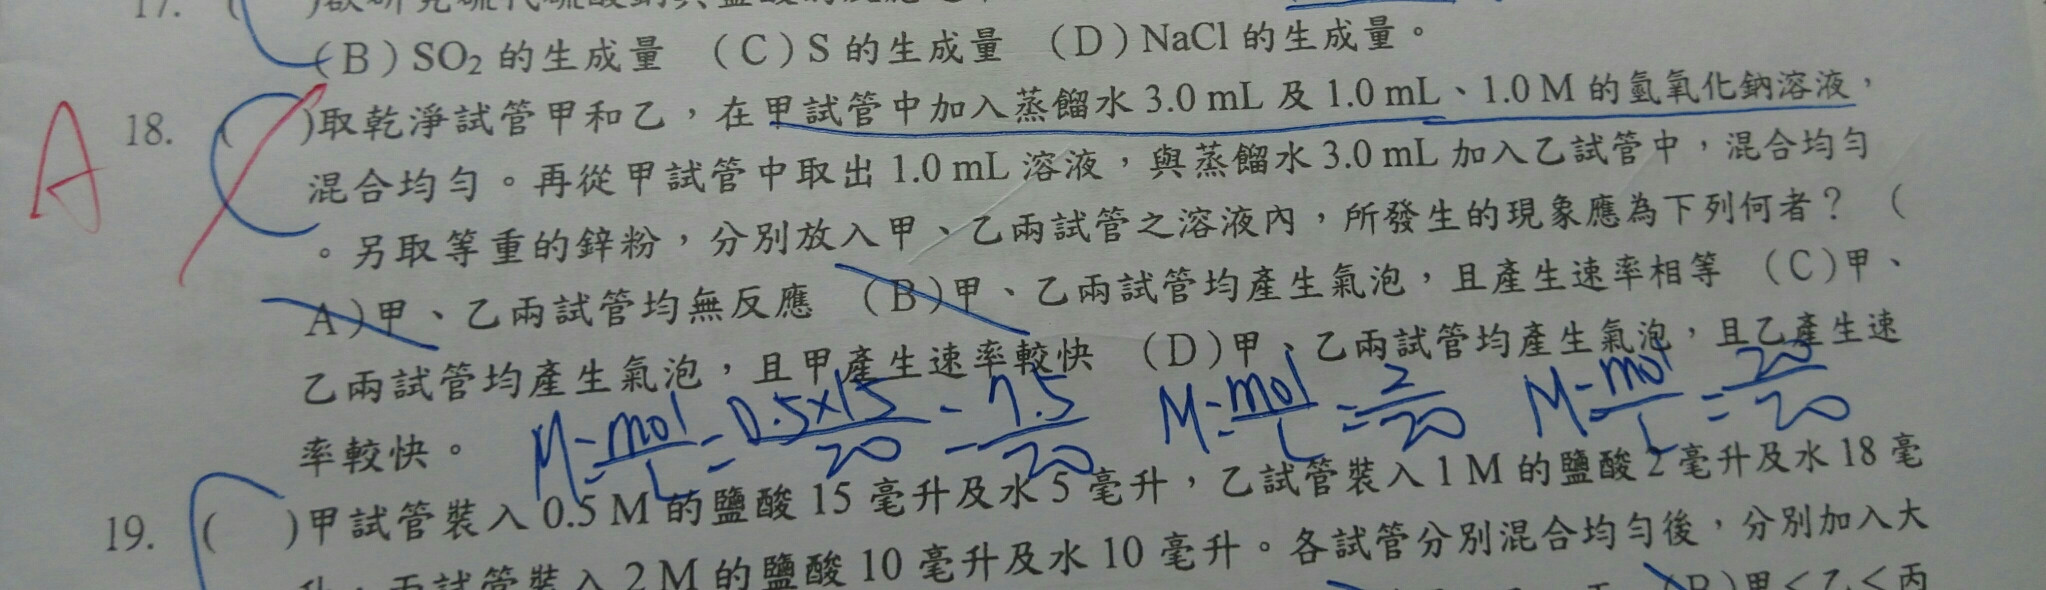 17. (
(B) SO₂ 的生成量 (C) S 的生成量 (D) NaCl 的生成量。
A
18. ( )取乾淨試管甲和乙，在甲試管中加入蒸餾水 3.0 mL 及 1.0 mL、1.0 M 的氫氧化鈉溶液，
混合均勻。再從甲試管中取出 1.0 mL 溶液，與蒸餾水 3.0 mL 加入乙試管中，混合均勻
。另取等重的鋅粉，分別放入甲、乙兩試管之溶液內，所發生的現象應為下列何者？ (
A)甲、乙兩試管均無反應 (B)甲、乙兩試管均產生氣泡，且產生速率相等 (C)甲、
乙兩試管均產生氣泡，且甲產生速率較快 (D)甲、乙兩試管均產生氣泡，且乙產生速
率較快。
M=mol/L=0.5×15/20=7.5/20 M=mol/L=2/20 M=mol/L=20/20
19. ( )甲試管裝入 0.5 M 的鹽酸 15 毫升及水 5 毫升，乙試管裝入 1 M 的鹽酸 2 毫升及水 18 毫
升，丙試管裝入 2 M 的鹽酸 10 毫升及水 10 毫升。各試管分別混合均勻後，分別加入大
(B)甲<乙<丙